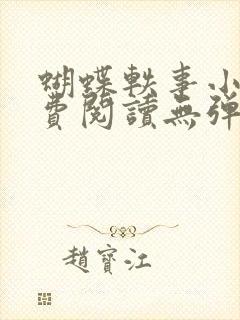 蝴蝶軼事小
費閱讀無彈
趙寶江